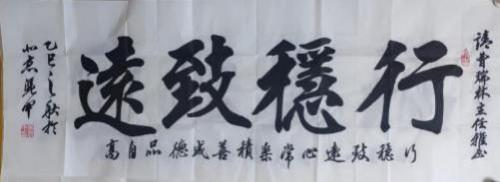 瑞林主任雅
行穩致遠
行穩致遠心常樂積善成德品自高
乙巳之秋於
北京